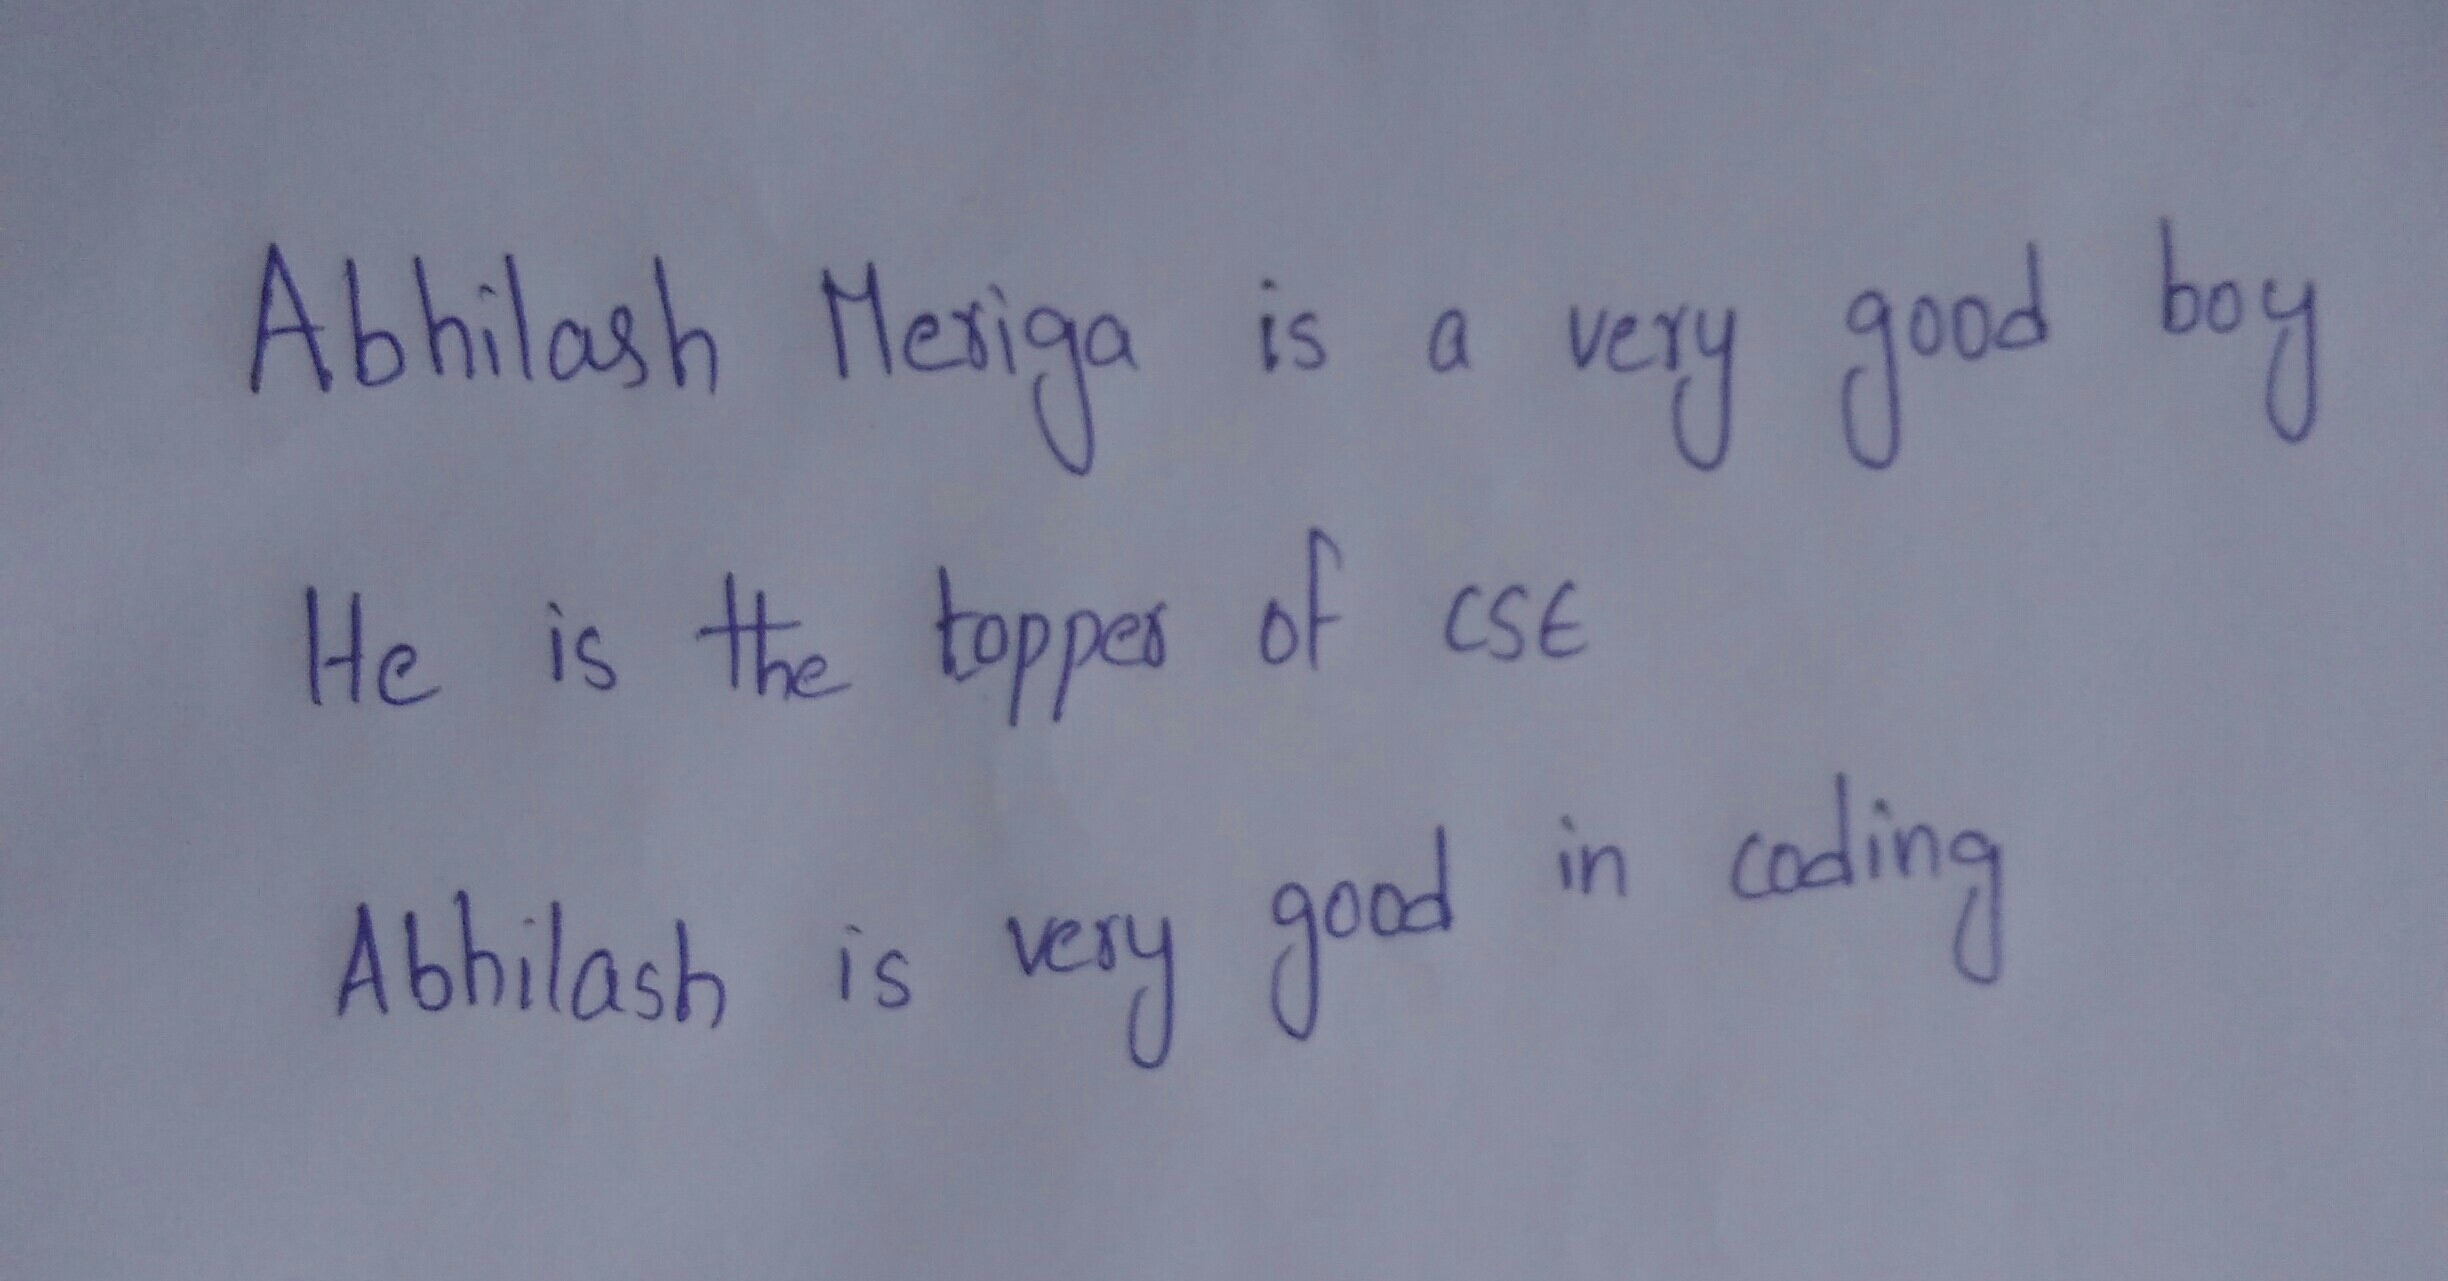 Abhilash Meriga is a very good boy
He is the topper of CSE
Abhilash is very good in coding